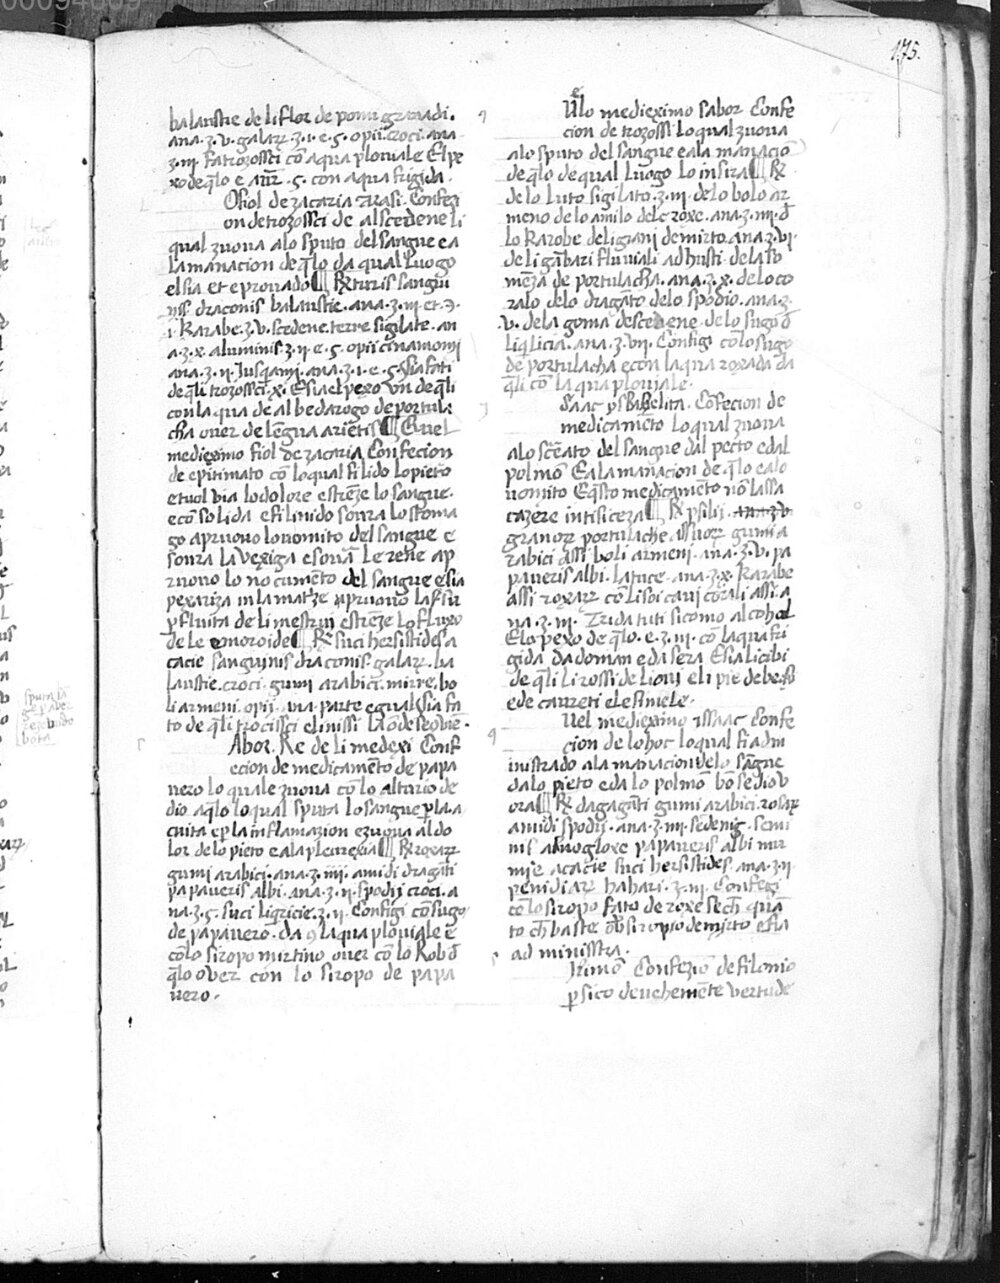 175.
balaustie de li flor de pomi granadi.
ana.ʒ.v. galarꝝ.ʒ.i.e.ς. opii.croci. ana
ʒ.iii. fa trozossci cō aqua ploviale. El pe
xo de q̄lo e aur̄.ς. con aqua frigida.
Ofiol de zacaria rrasi. Confeci
on de trozossci de alscedene li
qual zuova alo sputo del sangue e a
la manacion de q̄lo da qual luogo
el sia et e provado ¶ ℞ turis sangui
nis draconis balaustie. ana.ʒ.iii et.℈.
i. Karabe.ʒ.v. scedene. terre sigilate. an
a.ʒ.x. aluminis.ʒ.ii.e.ς. opii cinamomi
ana.ʒ.ii. Jusqami. ana.ʒ.i.e.ς. Sia fati
de q̄li trozossci.xi. E sia el pexo un de q̄li
con la qua de albedarogo de portula
cha over de lengua arietis ¶ E nel
medieximo fiol de zacaria Confecion
de epitimato cō lo qual fi lido lo pieto
e tuol via lo dolore e strēze lo sangue.
e cōsolida e fi linido sovra lo stoma
go a pruovo lo vomito del sangue e
sovra la vexiga e sovrā le rene ap
ruovo lo nocumēto del sangue e sia
pexariza in la matrze a pruovo la su
pfluita de li mestrui e strēze lo fluxo
de le emoroide ¶ ℞ suci hersistides a
cacie sanguinis draconis. galarꝝ. ba
laustie. croci. gumi arabici. mirre. bo
li armeni. opii. ana. parte egual sia fa
to de q̄li trocissci e linissi la ōde se ovie.
Aboz. Re de li medexi Conf
ecion de medicamēto de papa
vero lo quale zuova cō lo alturio de
dio a q̄lo lo qual sputa lo sangue p la a
cuita e p la inflamazion e zuova al do
lor de lo pieto e a la pleurexia ¶ ℞ roxarꝝ
gumi arabici. ana.ʒ.iiii. amidi dragāti
papaveris albi. ana.ʒ.ii. spodii croci. a
na.ʒ.ς. suci liqricie.ʒ.ii. Configi cō sugo
de papavero. Da 9 la qua ploviale e
cō lo siropo mirtino over cō lo Rob d
q̄lo over con lo siropo de papa
vero.
Nelo medieximo sabor Confe
cion de trozossi lo qual zuova
alo sputo del sangue e a la manaciō
de q̄lo de qual luogo lo insira ¶ ℞
de lo luto sigilato.ʒ.iii. de lo bolo ar
meno de lo amilo dele roxe. ana.ʒ.iiii. d
lo Karobe de li grani de mirto. ana.ʒ.vi.
de li gābari fluviali adhusti. de la so
mēza de portulacha. ana.ʒ.x. de lo co
ralo delo dragāto delo spodio. ana.ʒ.
v. de la goma de scedene. delo sugo d
liqilicia. ana.ʒ.vii. Configi cō lo sugo
de portulacha e con la qua roxada da
q̄li cō la qua ploviale.
Isaac ysbahelita. Cōfecion de
medicamēto lo qual zuova
alo screato del sangue dal pecto e dal
polmō E a la manacion de. q̄lo e alo
vomito E q̄sto medicamēto nō lassa
cazere in tisiceza ¶ ℞ psilii. ana.ʒ.v
granorꝝ portulache assuorꝝ gumi a
rabici assi boli armeni. ana.ʒ.v. pa
paveris albi. latuce. ana.ʒ.x. Karabe
assi roxarꝝ cō li soi cavi corali assi. a
na.ʒ.iii. Trida tuti si como alcohol
E lo pexo de q̄lo.e.ʒ.iii. cō la qua fri
gida da doman e da sera E sia li cibi
de q̄li li rossi de li ovi e li pie de beste
e de cavreti e le simele.
Nel medieximo issaac Confe
cion de lohoc lo qual fi adm
inistrado ala manacion delo sāgue
dalo pieto e da lo polmō bo sediov
ora ¶ ℞ dagagāti gumi arabici. rosarꝝ
amidi spodii. ana.ʒ.iiii. sedenig. semi
nis abuogloxe papaveris albi mir
mie acacie suci hersistides. ana.ʒ.ii
penidiarꝝ hahari.ʒ.iii. Confegi
cō lo siropo fato de roxe sech quā
to ch baste o de siropo de mirto e fia
ad ministra.
Primo Confeziō de filonio
psico de vehemēte vertude